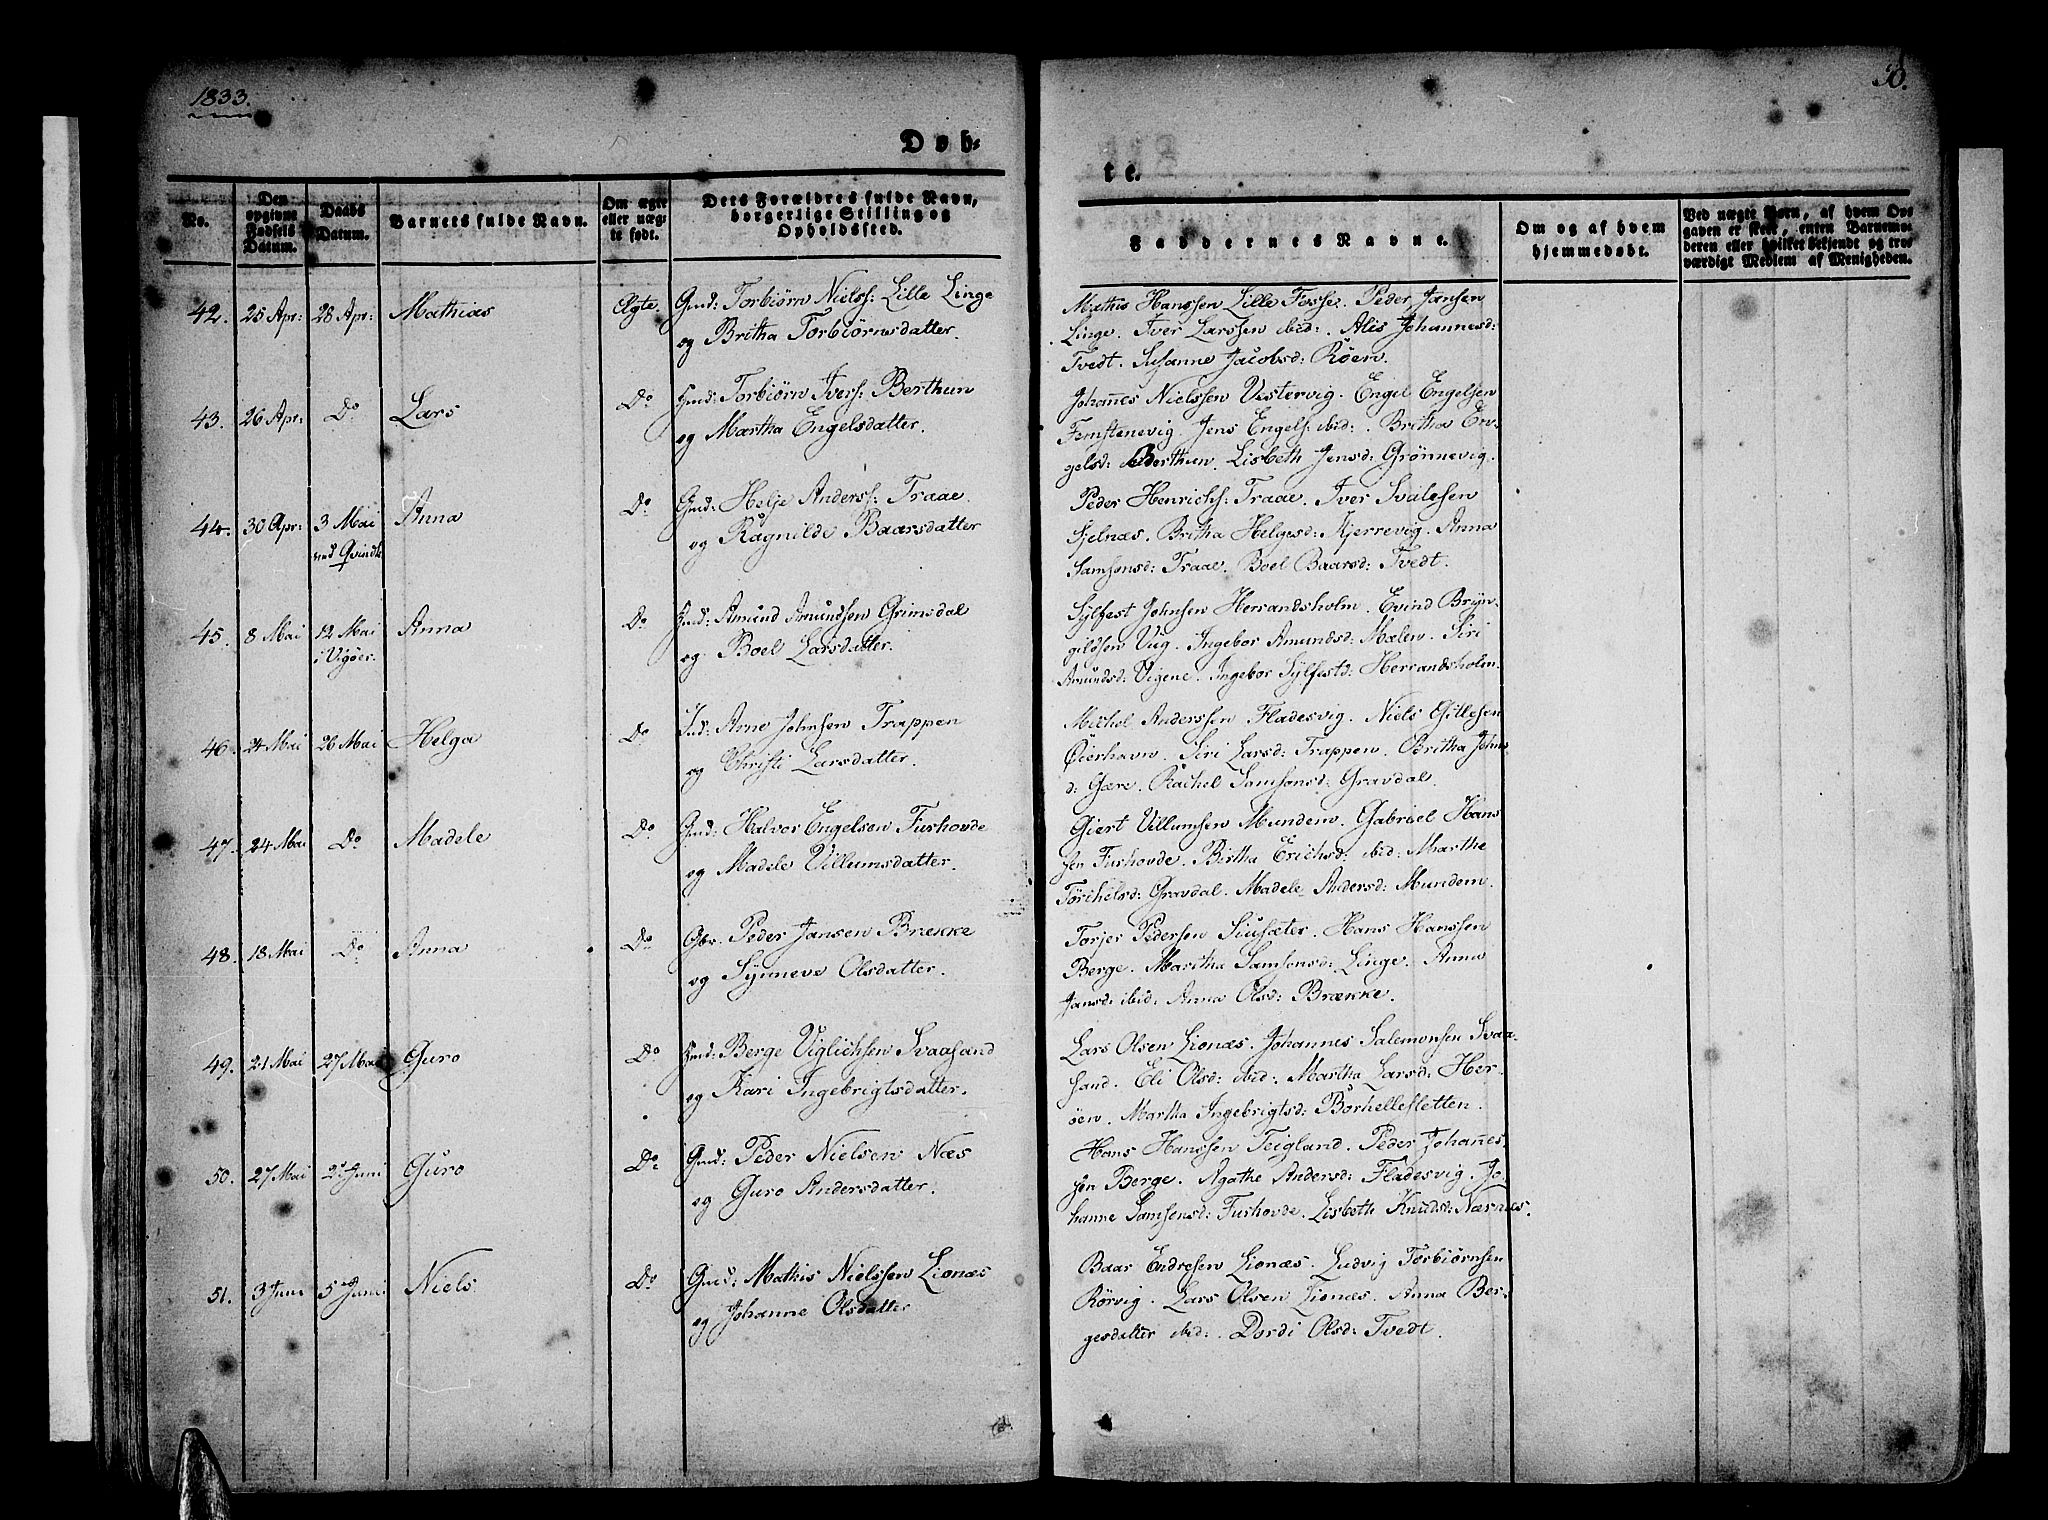 1833.
50.
Døb-
te.
No.
Den opgivne Fødsels Datum.
Daabs Datum.
Barnets fulde Navn.
Om ægte eller uægte født.
Dets Forældres fulde Navn, borgerlige Stilling og Opholdssted.
Faddernes Navne.
Om og af hvem hjemmedøbt.
Ved uægte Børn, af hvem Opgaven er skeet, enten Barnemoderen eller hvilket bekjendt og troværdigt Medlem af Menigheden.
42. 25 Apr: 28 Apr: Mathias Ægte. Gmd: Torbiørn Nielss: Lille Linge
og Britha Torbiørnsdatter.
Mathis Hanssen Lille Fosse. Peder Jansen
Linge. Iver Larssen ibid: . Alis Johannesd:
Tvedt. Susanne Jacobsd: Røen.
43. 26 Apr: Do Lars Do Hmd: Torbiørn Iverss: Berthun
og Martha Engelsdatter.
Johannes Nielssen Vestervig. Engel Engelsen
Femstenevig Jens Engels: ibid: . Britha En-
gelsd: Berthun. Lisbeth Jensd: Grønnevig.
44. 30 Apr: 3 Mai Anna Do Gmd: Helje Anderss: Traae.
ved Qvindh:
og Ragnilde Baarsdatter
Peder Henrichs: Traae. Iver Svalesen
Fjelnæs. Britha Helgesd: Kjerrevig. Anna
Samsonsd: Traae. Boel Baarsd: Tvedt.
45. 8 Mai 12 Mai Anna Do Hmd: Amund Amundsen Grimsdal
i Vigøer.
og Boel Larsdatter.
Sylfest Johnsen Herrandsholm. Evind Bryn-
gildsen Vig. Ingebor Amundsd: Mælen. Siri
Amundsd: Vigene. Ingebor Sylfestd: Herrandsholm.
46. 24 Mai 26 Mai Helga Do Ind: Arne Johnsen Trappen
og Christi Larsdatter.
Michel Anderssen Fladesvig. Niels Gitlesen
Øierhavn. Siri Larsd: Trappen. Britha Johns
d: Gære. Rachel Samsonsd: Gravdal.
47. 24 Mai Do Madele Do Gmd: Halvor Engelsen Furhovde
og Madele Villumsdatter.
Giert Villumsen Mundem. Gabriel Hans
sen Furhovde. Birtha Erichsd: ibid: Marthe
Torchelsd: Gravdal. Madele Andersd: Mundem.
48. 18 Mai Do Anna Do Gbr. Peder Jansen Brekke
og Synneve Olsdatter.
Torjer Pedersen Siusæter. Hans Hanssen
Berge. Maritha Samsonsd: Linge. Anna
Jansd: ibid: Anna Olsd: Brække.
49. 21 Mai 27 Mai Guro Do Hmd: Berge Viglichsen Svaasand
og Kari Ingebrigtsdatter.
Lars Olsen Lionæs. Johannes Salemonsen Svaa-
sand. Eli Olsd: ibid: Martha Larsd: Her-
øen. Martha Ingebrigtsd: Borhellesletten.
50. 27 Mai 2 Juni Guro Do Gmd: Peder Nielsen Næs
og Guro Andersdatter.
Hans Hanssen Teigland. Peder Johannes-
sen Berge. Agathe Andersd: Fladesvig. Jo-
hanne Samsensd: Furhovde. Lisbeth Knudsd: Nærnes.
51. 3 Juni 5 Juni Niels. Do Gmd: Mathis Nielssen Lionæs
og Johanne Olsdatter
Baar Endresen Lionæs. Ludvig Torbiørnsen
Rørvig. Lars Olsen Lionæs. Anna Ber-
gesdatter ibid: . Dordi Olsd: Tvedt.